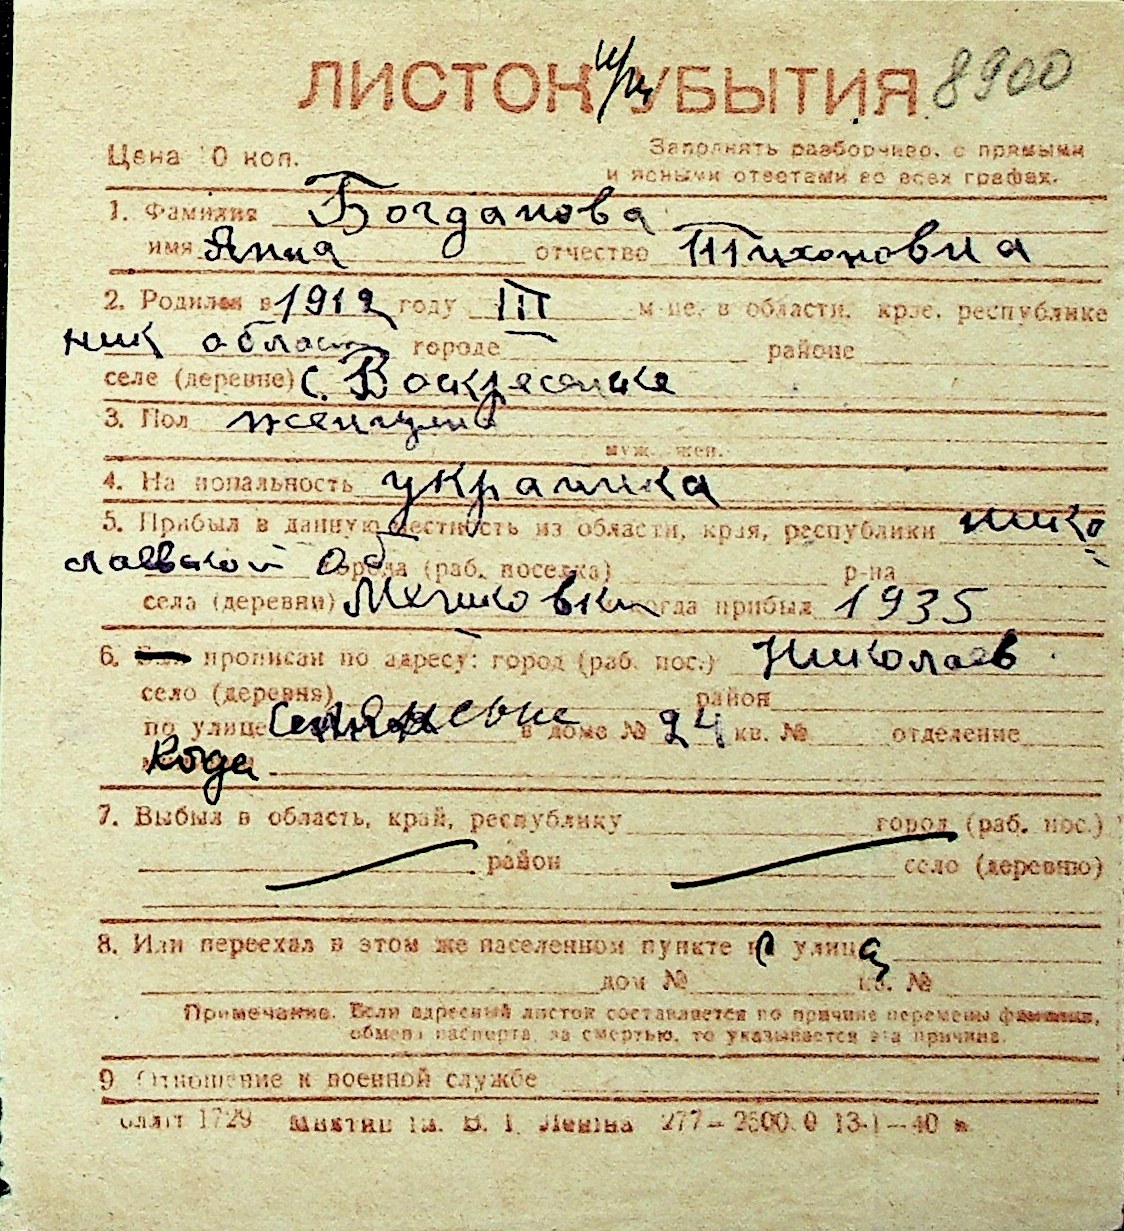 ЛИСТОК УБЫТИЯ 8900
Цена 10 коп.
Заполнять разборчиво, с прямыми
и ясными ответами во всех графах.
1. Фамилия Богданова
имя Анна отчество Тихоновна
2. Родился в 1912 году III м-це, в области, крае, республике
ник област городе районе
селе (деревне) с. Воскресенка
3. Пол женщина
муж., жен.
4. Национальность украинка
5. Прибыл в данную местность из области, края, республики нико
лаевской об города (раб. поселка) р-на
села (деревни) когда прибыл 1935
6. прописан по адресу: город (раб. пос.) Николаев
село (деревня) район
по улице в доме № 24 кв. № отделение
7. Выбыл в область, край, республику город (раб. пос.)
район село (деревню)
8. Или переехал в этом же населенном пункте улица
дом № кв. №
Примечание. Если адресный листок составляется по причине перемены фамилии,
обмена паспорта, за смертью, то указывается эта причина.
9 Отношение к военной службе
1729 Ленина 277—2500.0 13-I—40